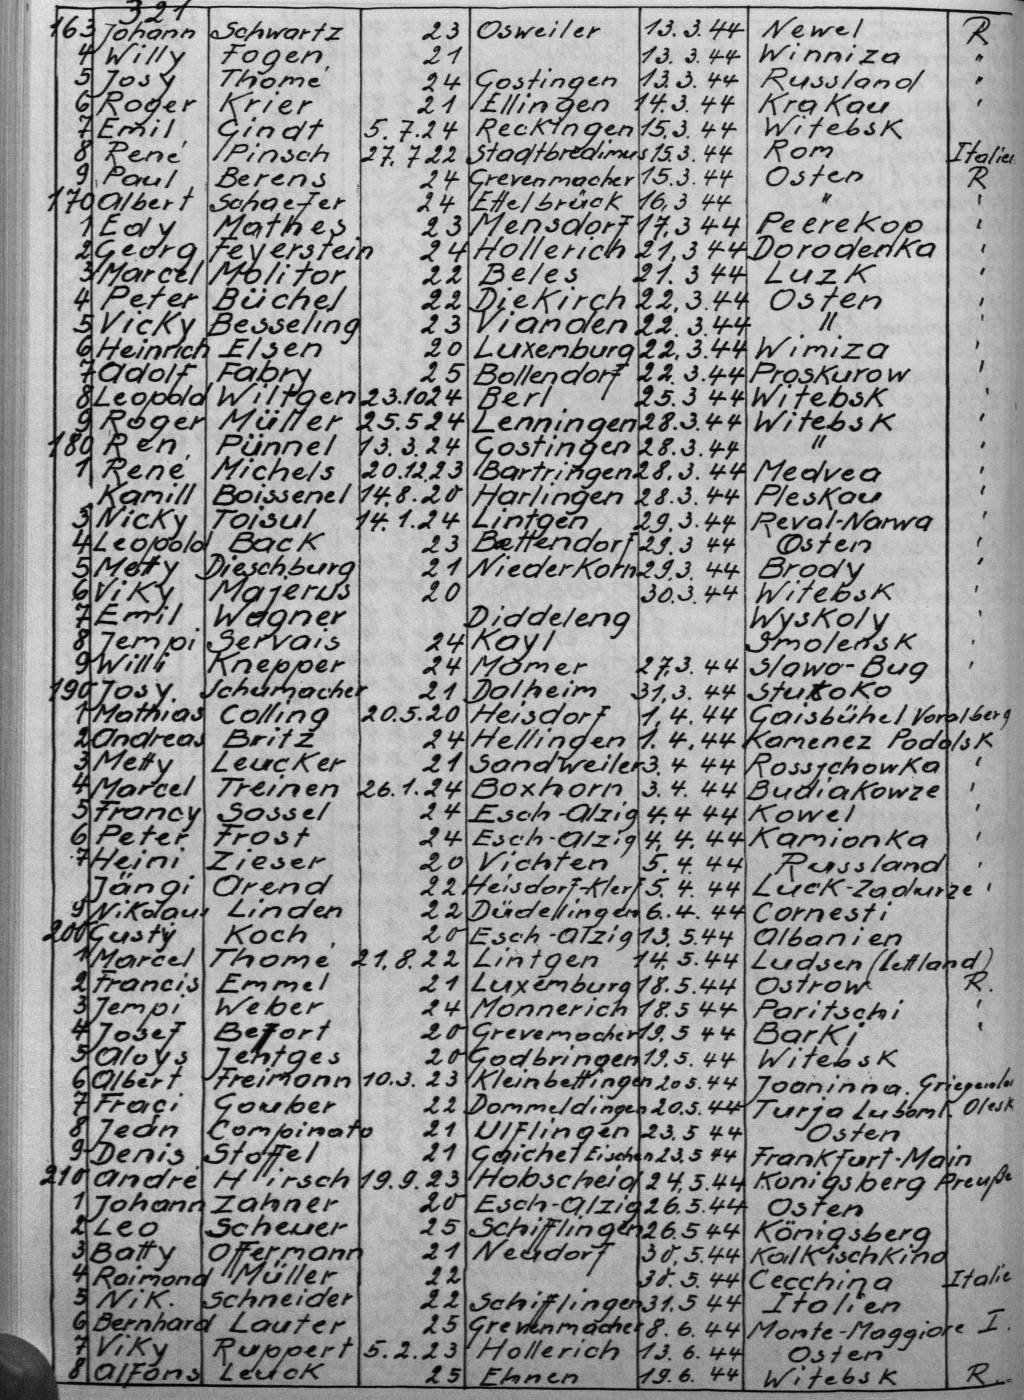 321
163 Johann Schwartz 23 Osweiler 13.3.44 Newel R
4 Willy Fogen 21 13.3.44 Winniza "
5 Josy Thomé 24 Gostingen 13.3.44 Russland "
6 Roger Krier 21 Ellingen 14.3.44 Krakau '
7 Emil Gindt 5.7.24 Reckingen 15.3.44 Witebsk
8 René Pinsch 27.7 22 Stadtbredimus 15.3.44 Rom Italien
9 Paul Berens 24 Grevenmacher 15.3.44 Osten R
170 Albert Schaefer 24 Ettelbrück 16.3 44 " '
1 Edy Mathes 23 Mensdorf 17.3 44 Peerekop '
2 Georg Feyerstein 24 Hollerich 21.3 44 Dorodenka '
3 Marcel Molitor 22 Beles 21.3 44 Luzk '
4 Peter Büchel 22 Diekirch 22.3.44 Osten '
5 Vicky Besseling 23 Vianden 22.3.44 " '
6 Heinrich Elsen 20 Luxemburg 22.3.44 Wimiza '
7 Adolf Fabry 25 Bollendorf 22.3.44 Proskurow '
8 Leopold Wiltgen 23.10 24 Berl 25.3 44 Witebsk '
9 Roger Müller 25.5 24 Lenningen 28.3.44 Witebsk '
180 Ren. Pünnel 13.3.24 Gostingen 28.3.44 " '
1 René Michels 20.12.23 Bartringen 28.3.44 Medvea '
Kamill Boissenel 14.8.20 Harlingen 28.3.44 Pleskau '
3 Nicky Toisul 14.1.24 Lintgen 29.3.44 Reval-Narwa '
4 Leopold Back 23 Bettendorf 29.3 44 Osten '
5 Metty Dieschburg 21 Niederkorn 29.3.44 Brody '
6 Viky Majerus 20 30.3.44 Witebsk '
7 Emil Wagner Diddeleng Wyskoly '
8 Jempi Servais 24 Kayl Smolensk '
9 Willi Knepper 24 Mömer 27.3.44 Slawo-Bug '
190 Josy Schumacher 21 Dalheim 31.3.44
1 Mathias Colling 20.5.20 Heisdorf 1.4.44 Gaisbühel Voralberg
2 Andreas Britz 24 Hellingen 1.4.44 Kamenez Podolsk
3 Metty Leucker 21 Sandweiler 3.4 44 Rossychowka '
4 Marcel Treinen 26.1.24 Boxhorn 3.4.44 Budiakowze '
5 Francy Sossel 24 Esch-Alzig 4.4 44 Kowel '
6 Peter Frost 24 Esch-Alzig 4.4.44 Kamionka '
7 Heini Zieser 20 Vichten 5.4.44 Russland '
Jängi Arend 22 Heisdorf-Klerf 5.4.44 Luck-Zadurze '
9 Nikolaus Linden 22 Düdellingen 6.4.44 Cornesti
200 Gusty Koch 20 Esch-Alzig 13.5.44 Albanien
1 Marcel Thome 21.8.22 Lintgen 14.5.44 Ludsen (Lettland)
2 Francis Emmel 21 Luxemburg 18.5.44 Ostrow R.
3 Jempi Weber 24 Monnerich 18.5 44 Paritschi '
4 Josef Befort 20 Grevemacher 19.5 44 Barki '
5 Aloys Jentges 20 Godbringen 19.5.44 Witebsk
6 Albert Freimann 10.3.23 Kleinbettingen 20 5.44 Joaninna.
7 Fraçi Gouber 22 Dommeldingen 20.5.44 Turja Luboml. Olesk
8 Jean Compinato 21 Ulflingen 23.5 44 Osten
9 Denis Stoffel 21 Gaichel Eischen 23.5 44 Frankfurt-Main
210 André Hirsch 19.9.23 Hobscheid 24.5.44 Konigsberg Preuße
1 Johann Zahner 20 Esch-Alzig 26.5.44 Osten
2 Leo Scheuer 25 Schifflingen 26.5 44 Königsberg
3 Batty Offermann 21 Neudorf 30.5.44 Kalkischkino
4 Raimond Müller 22 30.5.44 Cecchina Italie
5 Nik. Schneider 22 Schifflingen 31.5 44 Italien
6 Bernhard Lauter 25 Grevenmacher 8.6.44 Monte-Maggiore I.
7 Viky Ruppert 5.2.23 Hollerich 13.6.44 Osten
8 Alfons Leuck 25 Ehnen 19.6.44 Witebsk R.